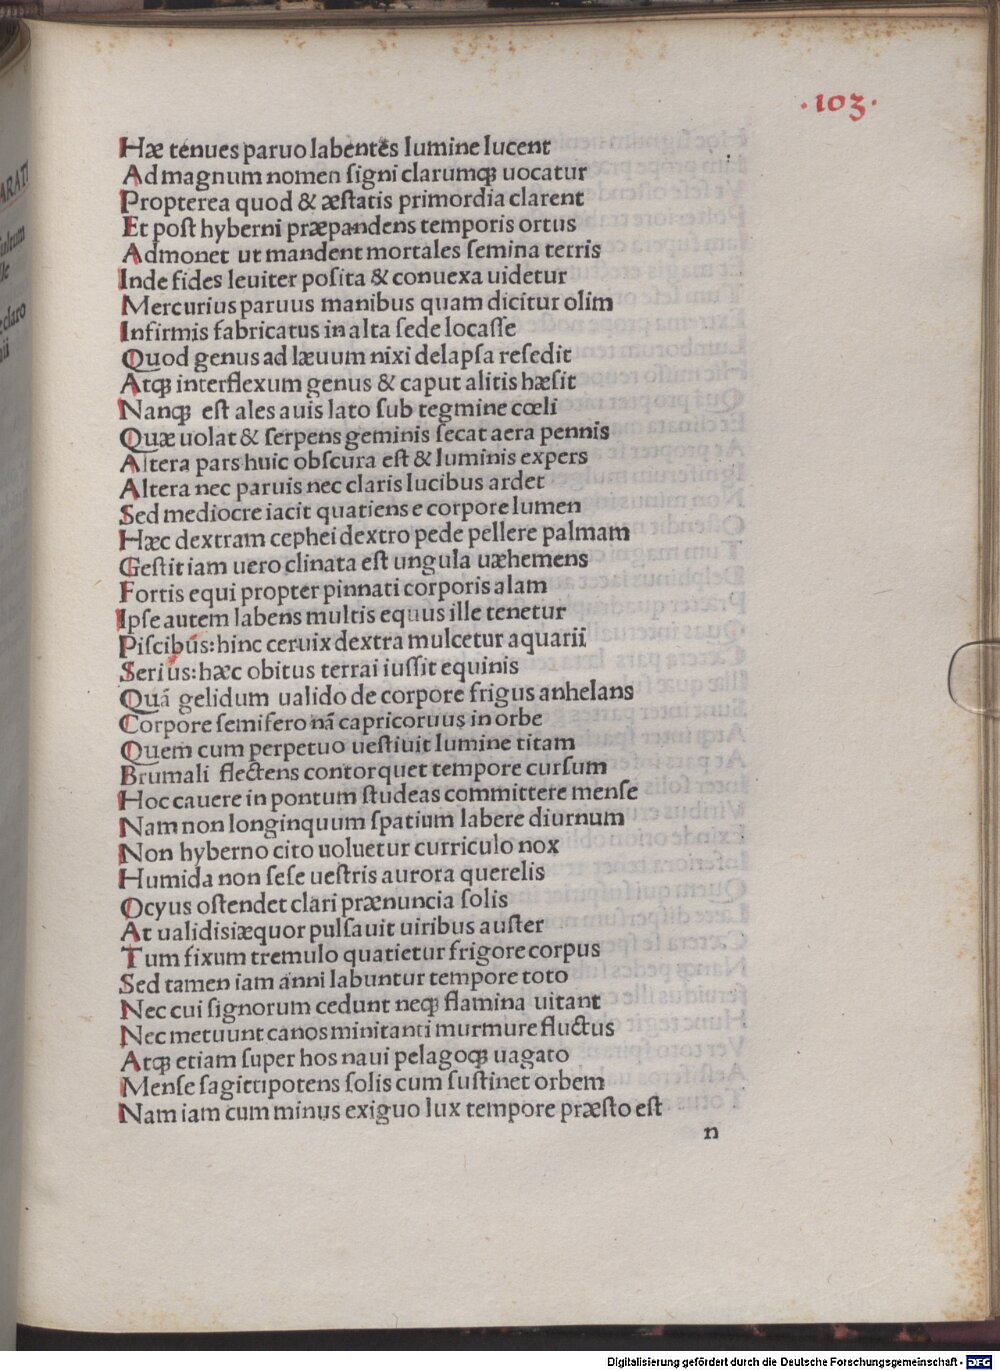 ·103·
Hæ tenues paruo labentes lumine lucent
Ad magnum nomen signi clarumqꝫ uocatur
Propterea quod & æstatis primordia clarent
Et post hyberni præpandens temporis ortus
Admonet ut mandent mortales semina terris
Inde fides leuiter posita & conuexa uidetur
Mercurius paruus manibus quam dicitur olim
Infirmis fabricatus in alta sede locasse
Quod genus ad læuum nixi delapsa resedit
Atqꝫ interflexum genus & caput alitis hæsit
Nanqꝫ est ales auis lato sub tegmine cœli
Quæ uolat & serpens geminis secat aera pennis
Altera pars huic obscura est & luminis expers
Altera nec paruis nec claris lucibus ardet
Sed mediocre iacit quatiens e corpore lumen
Hæc dextram cephei dextro pede pellere palmam
Gestit iam uero clinata est ungula uæhemens
Fortis equi propter pinnati corporis alam
Ipse autem labens multis equus ille tenetur
Piscibus: hinc ceruix dextra mulcetur aquarii
Serius: hæc obitus terrai iussit equinis
Quã gelidum ualido de corpore frigus anhelans
Corpore semifero nã capricoruus in orbe
Quem cum perpetuo uestiuit lumine titam
Brumali flectens contorquet tempore cursum
Hoc cauere in pontum studeas committere mense
Nam non longinquum spatium labere diurnum
Non hyberno cito uoluetur curriculo nox
Humida non sese uestris aurora querelis
Ocyus ostendet clari prænuncia solis
At ualidisiæquor pulsauit uiribus auster
Tum fixum tremulo quatietur frigore corpus
Sed tamen iam anni labuntur tempore toto
Nec cui signorum cedunt neqꝫ flamina uitant
Nec metuunt canos minitanti murmure fluctus
Atqꝫ etiam super hos naui pelagoqꝫ uagato
Mense sagittipotens solis cum sustinet orbem
Nam iam cum minus exiguo lux tempore præsto est
n
ARATI
Digitalisierung gefördert durch die Deutsche Forschungsgemeinschaft - DFG